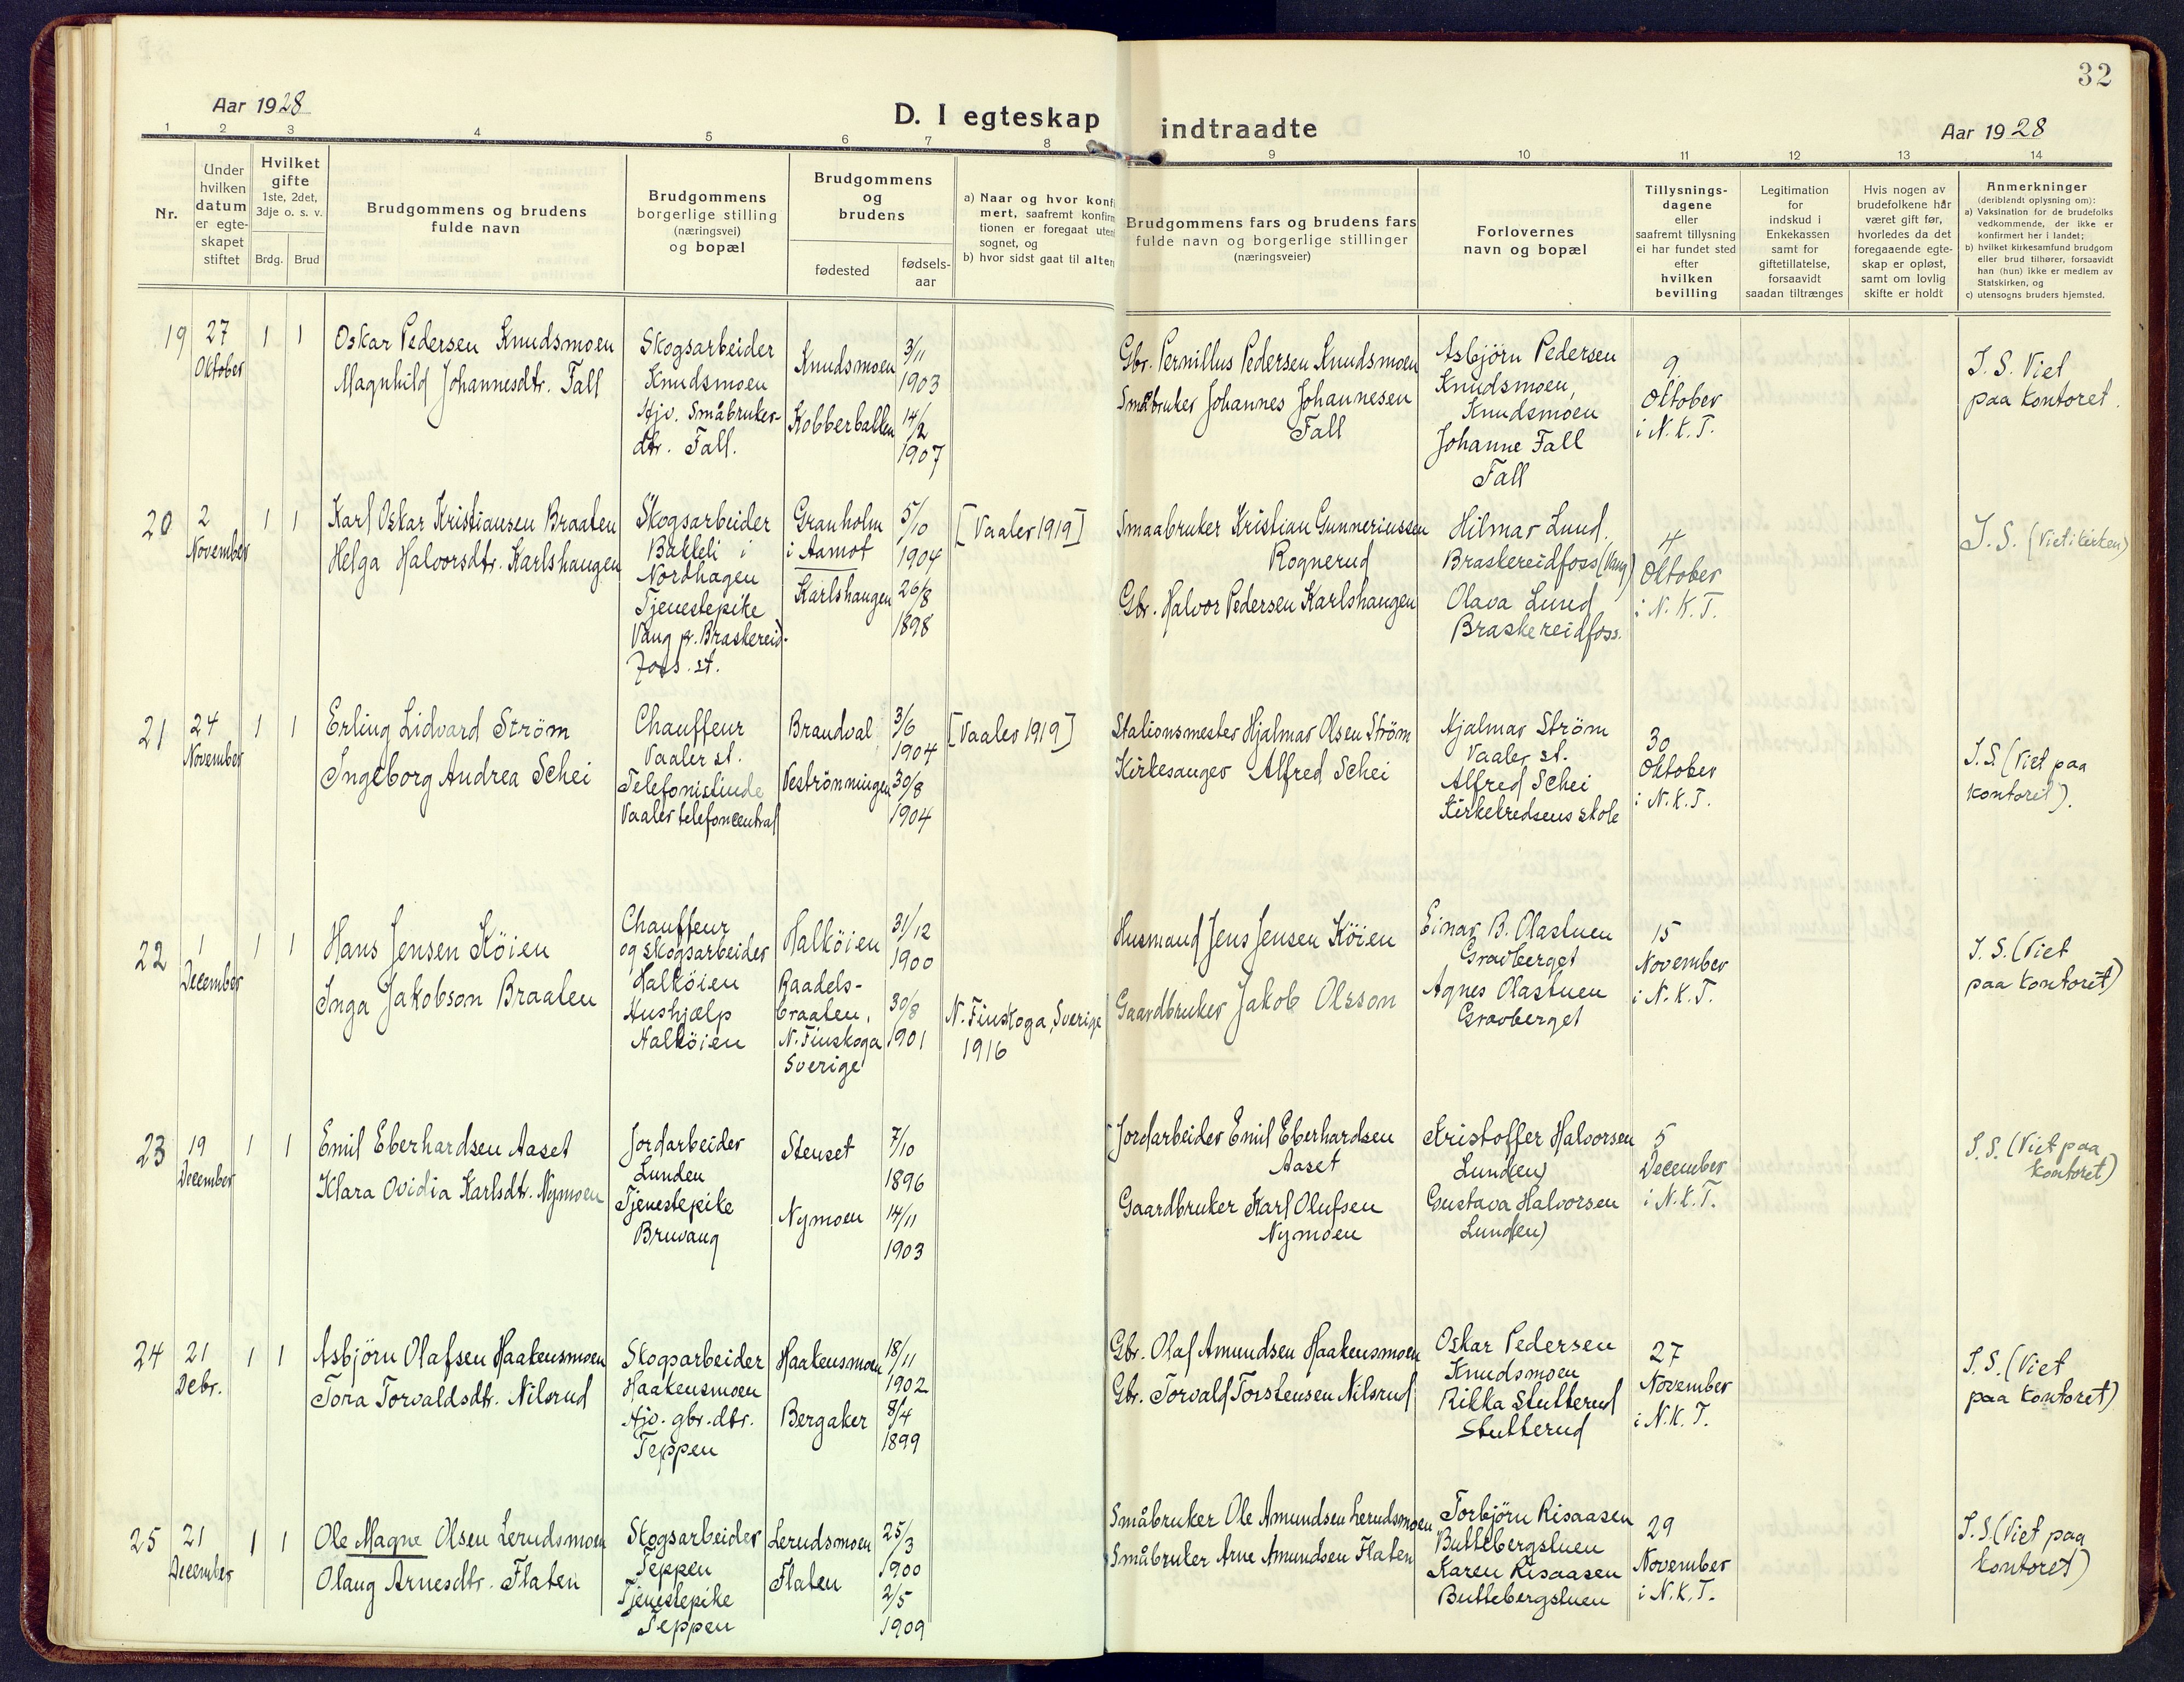 32
Aar 1928
D. I egteskap indtraadte
Aar 1928
1 2 3 4 5 6 7 8 9 10 11 12 13 14
Nr.
Under
hvilken
datum
er egte-
skapet
stiftet
Hvilket
gifte
1ste, 2det,
3dje o. s. v.
Brdg. Brud
Brudgommens og brudens
fulde navn
Brudgommens
borgerlige stilling
(næringsvei)
og bopæl
Brudgommens
og
brudens
fødested
fødsels-
aar
a) Naar og hvor konfi
mert, saafremt konfirm
tionen er foregaat uten
sognet, og
b) hvor sidst gaat til alter
Brudgommens fars og brudens fars
fulde navn og borgerlige stillinger
(næringsveier)
Forlovernes
navn og bopæl
Tillysnings-
dagene
eller
saafremt tillysning
ei har fundet sted
efter
hvilken
bevilling
Legitimation
for
indskud i
Enkekassen
samt for
giftetillatelse,
forsaavidt
saadan tiltrænges
Hvis nogen av
brudefolkene hår
været gift før,
hvorledes da det
foregaaende egte-
skap er opløst,
samt om lovlig
skifte er holdt
Anmerkninger
(deriblandt oplysning om):
a) Vaksination for de brudefolks
vedkommende, der ikke er
konfirmert her i landet;
b) hvilket kirkesamfund brudgom
eller brud tilhører, forsaavidt
han (hun) ikke er medlem av
Statskirken, og
c) utensogns bruders hjemsted.
19
27
Oktober
1 1
Oskar Pedersen Knudsmoen
Magnhild Johannesdtr. Fall
Skogsarbeider
Knudsmoen
Hjv. Småbruker-
dtr. Fall.
Knudsmoen
Kobberbakken
3/11
1903
14/2
1907
Gbr. Pernillus Pedersen Knudsmoen
Småbruker Johannes Johannesen
Fall
Asbjörn Pedersen
Knudsmoen,
Knudsmoen
Johanne Fall
Fall
9
Oktober
i N. K. T.
I. S. Viet
paa kontoret.
20
2
November
1 1
Karl Oskar Kristiansen Braaten
Helga Halvorsdtr. Karlshaugen
Skogsarbeider
Bakkeli i
Nordhagen
Tjenestepike
Vang pr. Braskereid-
foss. st.
Granholm
i Aamot
Karlshaugen
5/10
1904
26/8
1898
[Vaaler 1919]
Smaabruker Kristian Gunneriussen
Rognerud
Gbr. Halvor Pedersen Karlshaugen
Hilmar Lund.
Braskereidfoss (Vang)
Olava Lund
Braskereidfoss.
4
Oktober
i N. K. T.
I. S. (Viet i kirken)
21
24
November
1 1
Erling Lidvard Ström
Ingeborg Andrea Schei
Chauffeur
Vaaler st.
Telefonistinde
Vaaler telefoncentral
Brandval
Veströmningen
3/6
1904
30/8
1904
[Vaaler 1919]
Stationsmester Hjalmar Olsen Ström
Kirkesanger Alfred Schei
Hjalmar Ström
Vaaler st.
Alfred Schei
Kirkekredsens skole
30
Oktober
i N. K. T.
I. S. (Viet paa
kontoret).
22
1
December
1 1
Hans Jensen Köien
Inga Jakobson Braaten
Chauffeur
og skogsarbeider
Halköien
Hushjælp
Halköien
Halköien
Raadels-
braaten,
N. Finskoga
Sverige
31/12
1900
30/8
1901
N. Finskoga, Sverige
1916
Husmand Jens Jensen Köien
Gaardbruker Jakob Olsson
Einar B. Olastuen
Gravberget
Agnes Olastuen
Gravberget
15
November
i N. K. T.
I. S. (Viet
paa kontoret)
23
19
December
1 1
Emil Eberhardsen Aaset
Klara Ovidia Karlsdtr. Nymoen
Jordarbeider
Lunden
Tjenestepike
Bruvang
Stenset
Nymoen
7/10
1896
14/11
1903
Jordarbeider Emil Eberhardsen
Aaset
Gaardbruker Karl Olufsen
Nymoen
Kristoffer Halvorsen
Lund(en)
Gustava Halvorsen
Lund(en)
5
December
i N. K. T.
I. S. (Viet paa
kontoret)
24
21
Debr.
1 1
Asbjörn Olafsen Haakensmoen
Tora Torvaldsdtr. Nilsrud
Skogsarbeider
Haakensmoen
Hjv. gbr. dtr.
Teppen
Haakensmoen
Bergaker
18/11
1902
8/4
1899
Gbr. Olaf Amundsen Haakensmoen
Gbr. Torvald Torstensen Nilsrud
Oskar Pedersen
Knudsmoen
Rikka Stutterud
Stutterud
27
November
i N. K. T.
I. S. (Viet
paa kontoret)
25
21
December
1 1
Ole Magne Olsen Lerudsmoen
Olaug Arnesdtr. Flaten
Skogsarbeider
Teppen
Tjenestepike
Teppen
Lerudsmoen
Flaten
25/3
1900
2/5
1909
Småbruker Ole Amundsen Lerudsmoen
Småbruker Arne Amundsen Flaten
Torbjörn Risaasen
Buttebergstuen
Karen Risaasen
Buttebergstuen
29
November
i N. K. T.
I. S. (Viet paa
kontoret)